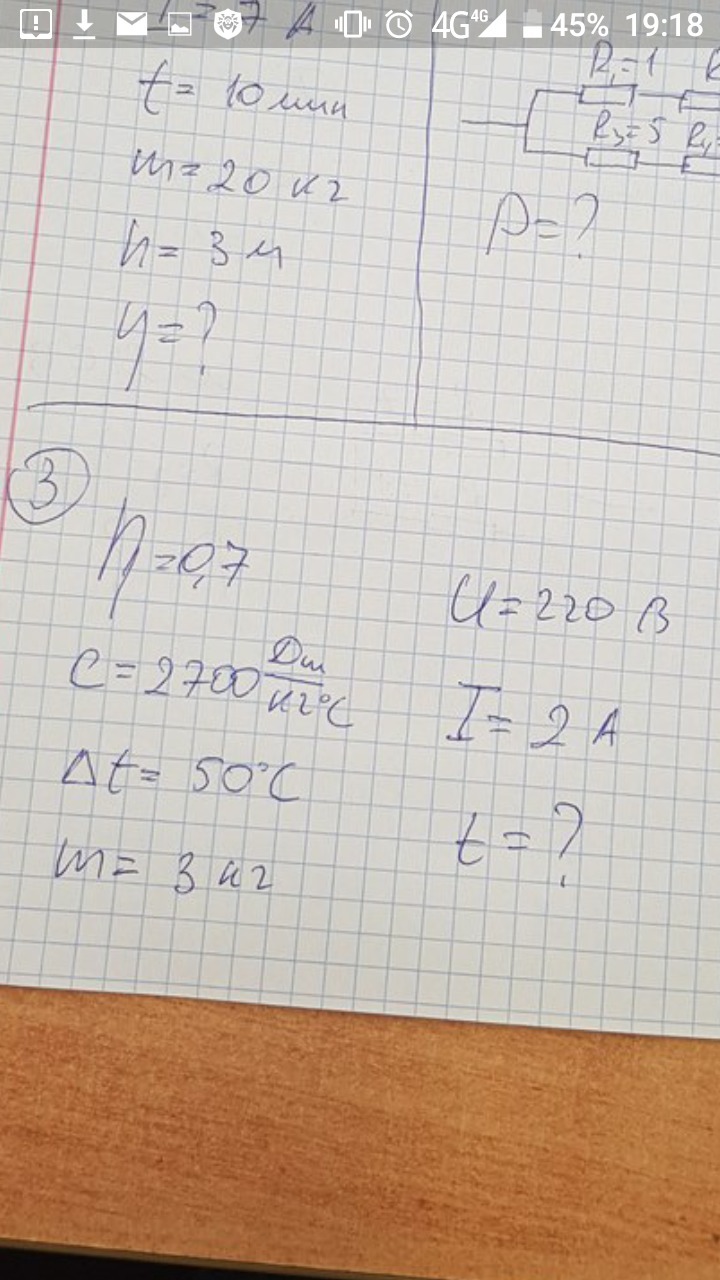 4G 4G 45% 19:18
= 7 A
t = 10 мин
m = 20 кг
h = 3 м
y = ?
R₁=1
R₃=5
P = ?
3
η = 0,7
C = 2700 Дж/кг°C
Δt = 50°C
m = 3 кг
U = 220 В
I = 2 A
t = ?